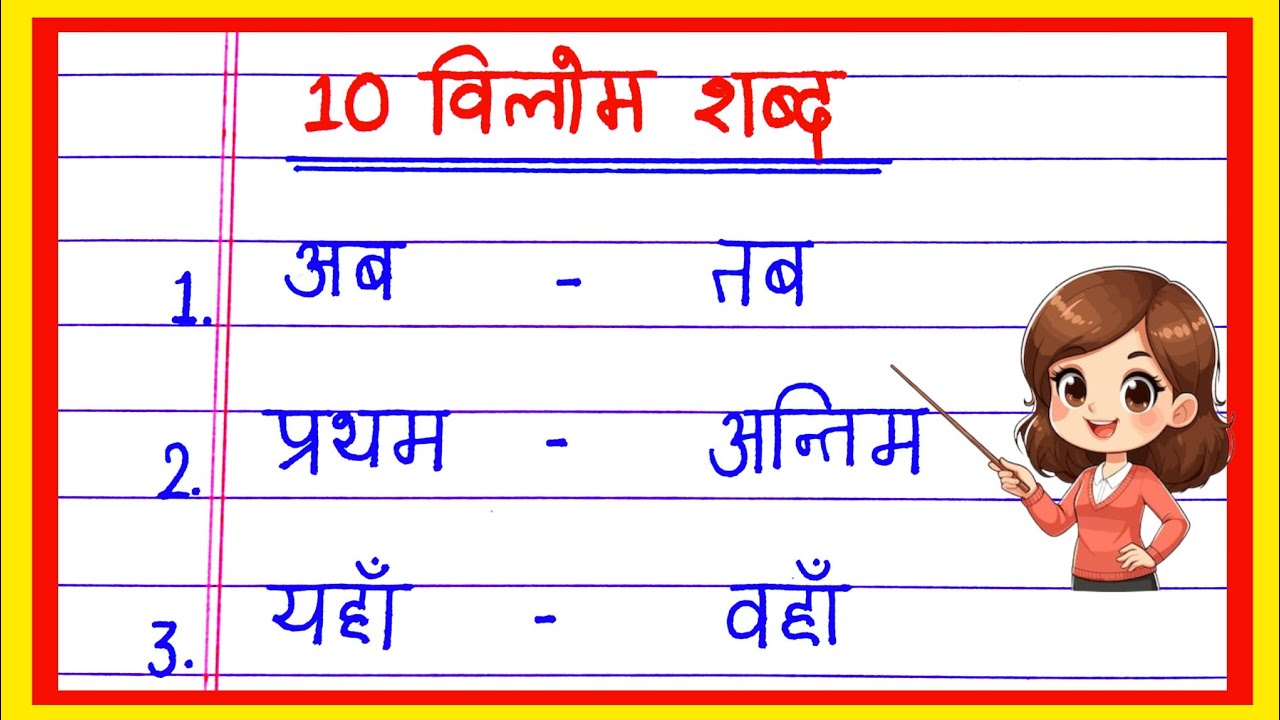 10 विलोम शब्द
1. अब - तब
2. प्रथम - अन्तिम
3. यहाँ - वहाँ